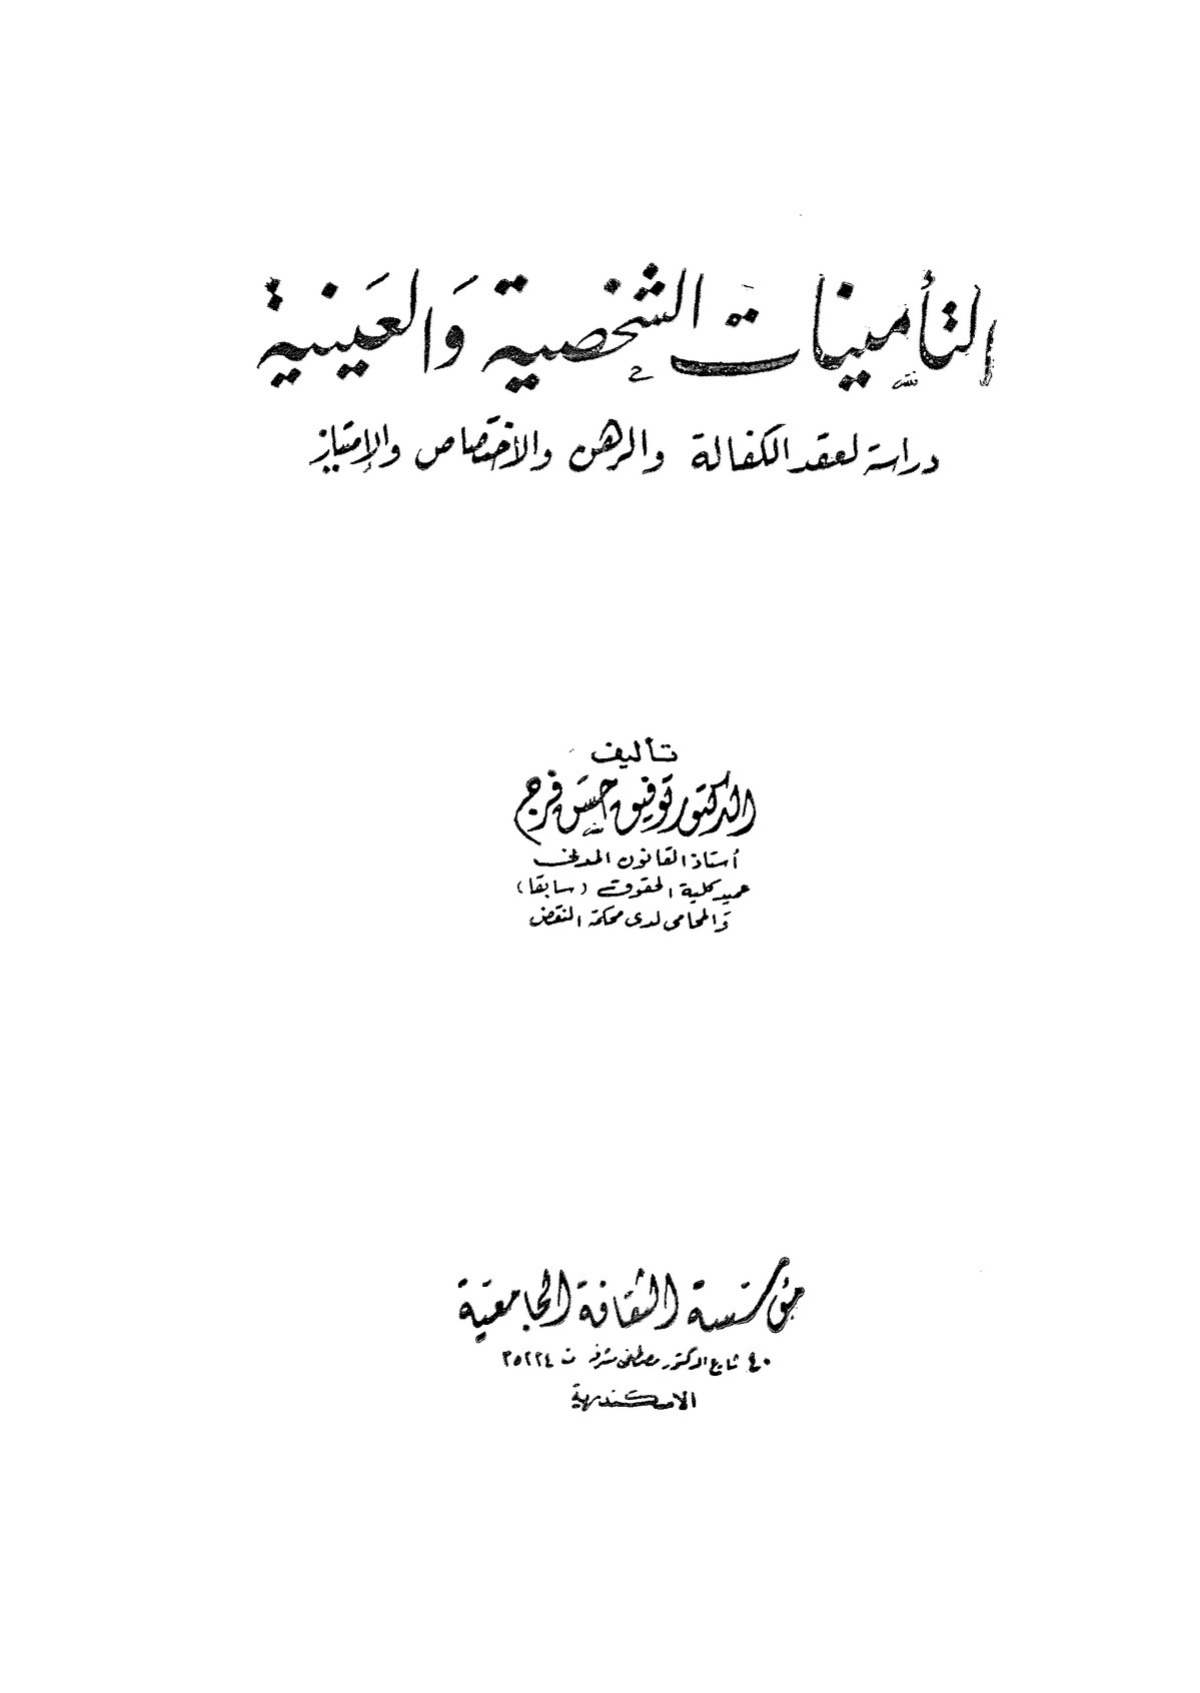 التأمينات الشخصية وَالعَينية
دراسة لعقد الكفالة والرهن والأختصاص والإمتياز
تأليف
الدكتور توفيق حسَن فرج
أستاذ القانون المدنى
عميد كلية الحقوق (سابقا)
وَالمحامى لدى محكمة النقض
مؤسسة الثقافة الجامعية
٤٠ شارع الدكتور مصطفى مشرفة ت ٣٥٢٢٤
الاسكندرية